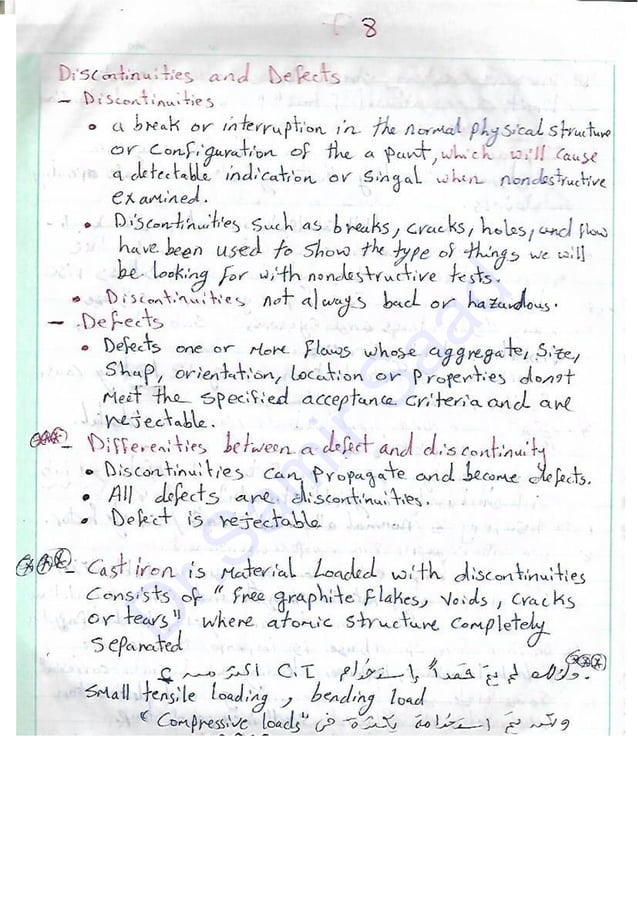 8
Discontinuities and Defects
- Discontinuities
• a break or interruption in the normal physical structure
or configuration of the a part, which will cause
a detectable indication or singal when nondestructive
examined.
• Discontinuities such as breaks, cracks, holes, and flow
have been used to show the type of things we will
be looking for with nondestructive tests.
• Discontinuities not always bad or hazardous.
- Defects
• Defects one or more flaws whose aggregate, size,
shap, orientation, location or properties donot
meet the specified acceptance criteria and are
rejectable.
- Differenities between a defect and discontinuity
• Discontinuities can propagate and become defects.
• All defects are discontinuities.
• Defect is rejectable
- Cast iron is material loaded with discontinuities
consists of "free graphite flakes, voids, cracks
or tears" where atomic structure completely
separated
إستخدام C.I
small tensile loading, bending load
"Compressive loads" فى
Dr. Samir Saad